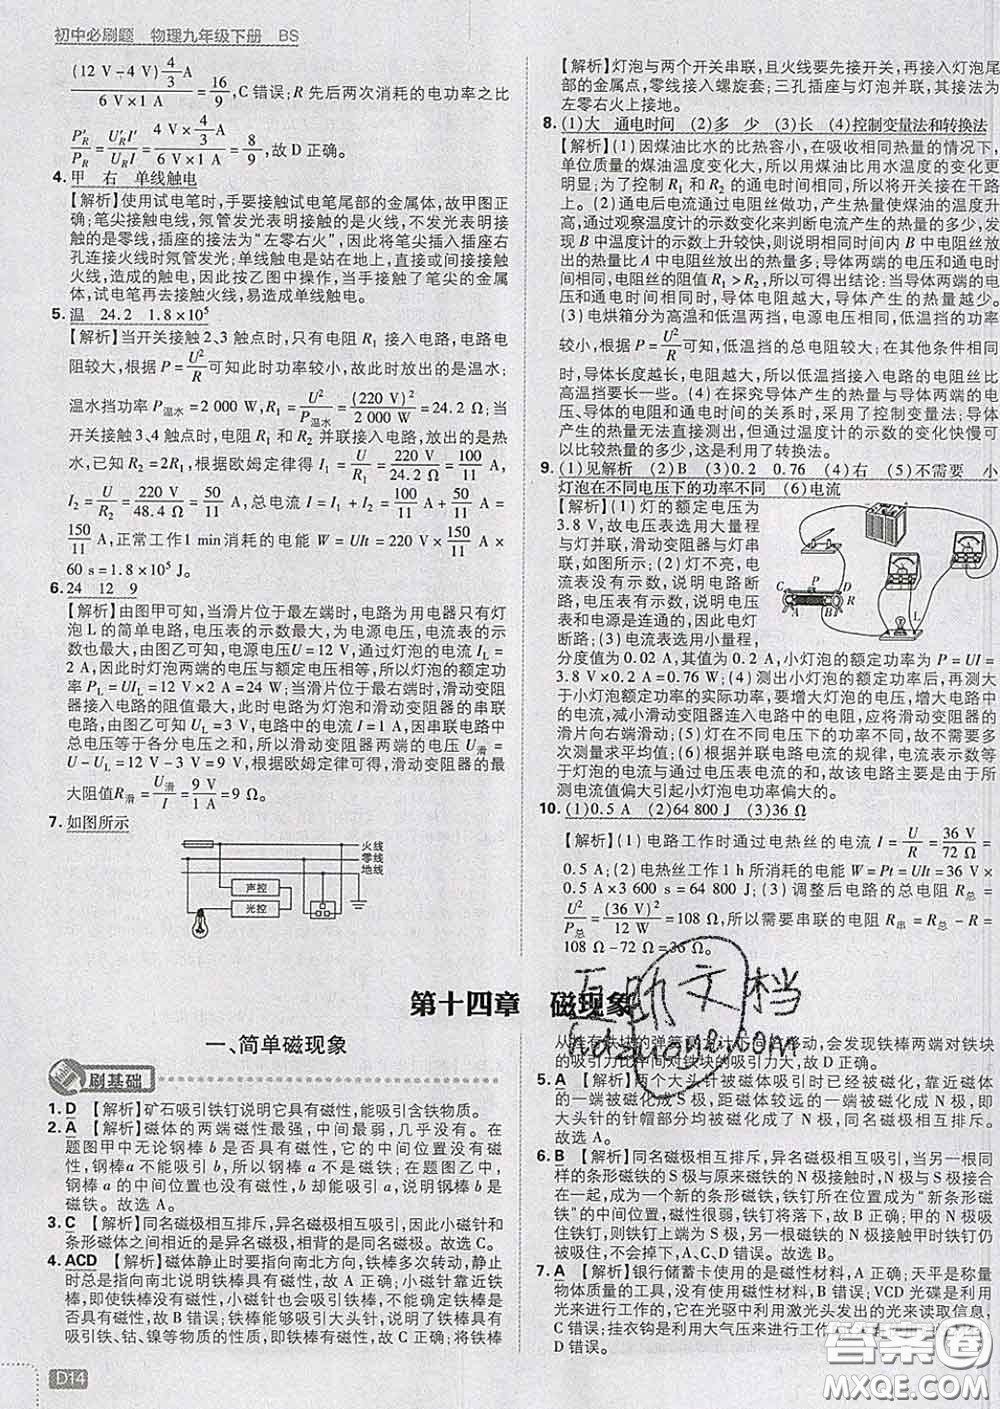 初中必刷题 物理九年级下册 BS
(12 V-4 V)4/3 A / 6 V×1 A = 16/9, C 错误; R 先后两次消耗的电功率之比
P'R/PR = U'RI'/URI = 4 V×4/3 A / 6 V×1 A = 8/9, 故 D 正确。
4. 甲 右 单线触电
【解析】使用试电笔时,手要接触试电笔尾部的金属体,故甲图正
确;笔尖接触电线,氖管发光表明接触的是火线,不发光表明接触
的是零线,插座的接法为“左零右火”,因此将笔尖插入插座右
孔连接火线时氖管发光;单线触电是站在地上,直接或间接接触
火线,造成的触电,因此按乙图中操作,当手接触了笔尖的金属
体,试电笔再去接触火线,易造成单线触电。
5. 温 24.2 1.8×10⁵
【解析】当开关接触2、3触点时,只有电阻 R₁ 接入电路,电路电
阻较大,根据 P=U²/R 可知此时功率较小,故此时放出的是温水;
温水挡功率 P温水=2 000 W, R₁=U²/P温水=(220 V)²/2 000 W=24.2 Ω;当
开关接触3、4触点时,电阻 R₁ 和 R₂ 并联接入电路,放出的是热
水,已知 R₂=2R₁,根据欧姆定律得 I₁=U/R₁=220 V/24.2 Ω=100/11 A,
I₂=U/R₂=220 V/48.4 Ω=50/11 A,总电流 I=I₁+I₂=100/11 A+50/11 A=
150/11 A,正常工作1 min消耗的电能 W=UIt=220 V×150/11 A×
60 s=1.8×10⁵ J。
6. 24 12 9
【解析】由图甲可知,当滑片位于最左端时,电路为用电器只有灯
泡 L 的简单电路,电压表的示数最大,为电源电压,电流表的示
数也最大,由图乙可知,电源电压 U=12 V,通过灯泡的电流 IL=
2 A,因此时灯泡两端的电压与额定电压相等,所以灯泡的额定功
率 PL=UIL=12 V×2 A=24 W;当滑片位于最右端时,滑动变阻
器接入电路的阻值最大,此时电路为灯泡和滑动变阻器的串联
电路,由图乙可知 UL=3 V,电路中的电流 I=1 A,因串联电路中
总电压等于各分电压之和,所以滑动变阻器两端的电压 U滑=
U-UL=12 V-3 V=9 V,根据欧姆定律可得,滑动变阻器的最
大阻值R滑=U滑/I=9 V/1 A=9 Ω。
7. 如图所示
火线
零线
地线
声控
光控
【解析】灯泡与两个开关串联,且火线要先接开关,再接入灯泡尾
部的金属点,零线接入螺旋套;三孔插座与灯泡并联,其接法为
左零右火上接地。
8. (1)大 通电时间 (2)多 少 (3)长 (4)控制变量法和转换法
【解析】(1)因煤油比水的比热容小,在吸收相同热量的情况下,
单位质量的煤油温度变化大,所以用煤油比用水温度的变化更
明显;为了控制 R₁ 和 R₂ 的通电时间相同,所以将开关接在干路
上。(2)通电后电流通过电阻丝做功,产生热量使煤油的温度升
高,通过观察温度计的示数变化来判断电流产生的热量的多少,发
现 B 中温度计的示数上升较快,则说明相同时间内 B 中电阻丝放
出的热量比 A 中电阻丝放出的热量多;导体两端的电压、导体的通
电时间相同,电阻丝的阻值 R₁>R₂,所以,当导体两端的电压和
通电时间相同时,导体电阻越大,导体产生的热量越少。
(3)电烘箱分为高温和低温两挡,电源电压相同,低温挡的功率
较小,根据 P=U²/R 可知,低温挡的总电阻较大;在其他条件相同
时,导体长度越长,电阻越大,所以低温挡接入电路的电阻丝比
高温挡要长一些。(4)在探究导体产生的热量与导体两端的电
压、导体的电阻和通电时间的关系时,采用了控制变量法;导体
产生的热量无法直接测出,但通过温度计的示数的变化快慢可
以比较热量的多少,这是利用了转换法。
9. (1)见解析 (2)B (3)0.2 0.76 (4)右 (5)不需要 小
灯泡在不同电压下的功率不同 (6)电流
【解析】(1)灯的额定电压为
3.8 V,故电压表选用大量程
与灯并联,滑动变阻器与灯串
联,如图所示;(2)灯不亮,电
流表没有示数,说明电路断
路,电压表有示数,说明电压
表与电源是连通的,因此电灯
断路;(3)电流表选用小量程,
分度值为 0.02 A,其示数为 0.2 A,小灯泡的额定功率为 P=UI=
3.8 V×0.2 A=0.76 W;(4)测出小灯泡的额定功率后,再测大
于小灯泡额定功率的实际功率,要增大灯泡的电压,增大电路中
的电流,减小滑动变阻器连入电路中的电阻,应将滑动变阻器的
滑片向右端滑动;(5)灯在不同电压下的功率不同,故不需要多
次测量求平均值;(6)根据并联电路电流的规律,电流表示数等
于灯泡的电流与通过电压表电流的和,故该电路主要是因为所
测电流值偏大引起小灯泡电功率偏大的。
C P D
A B R
L
10. (1)0.5 A (2)64 800 J (3)36 Ω
【解析】(1)电路工作时通过电热丝的电流 I=U/R=36 V/72 Ω=
0.5 A;(2)电热丝工作1 h所消耗的电能 W=Pt=UIt=36 V×
0.5 A×3 600 s=64 800 J;(3)调整后电路的总电阻 R总=
U²/P总=(36 V)²/12 W=108 Ω,所以需要串联的电阻 R串=R总-R=
108 Ω-72 Ω=36 Ω。
第十四章 磁现象
一、简单磁现象
刷基础
1. D 【解析】矿石吸引铁钉说明它具有磁性,能吸引含铁物质。
2. A 【解析】磁体的两端磁性最强,中间最弱,几乎没有。在
题图甲中无论钢棒 b 是否具有磁性,它的中间位置没有磁
性,钢棒a不能吸引b,所以钢棒 a 不是磁铁;在题图乙中,
钢棒 b 的中间位置也没有磁性,b却能吸引 a,说明b是磁
铁。故选 A。
3. C 【解析】同名磁极相互排斥,异名磁极相互吸引,因此小磁针和
条形磁体之间相近的是异名磁极,相背的是同名磁极。故选 C。
4. ACD 【解析】磁体静止时要指向南北方向,铁棒多次转动,静止
时总是指向南北说明铁棒具有磁性,故 A 正确;小磁针靠近铁
棒,即使铁棒没有磁性,小磁针也会吸引铁棒,不能确定铁棒是
否有磁性,故 B 错误;铁棒能够吸引大头针,说明了铁棒具有
吸引铁、钴、镍等物质的性质,即铁棒有磁性,故 C 正确;将铁棒
从挂有铁块的弹簧测力计下水平移动,会发现铁棒两端对铁块
的吸引力比中间对铁块的吸引力大,故 D 正确。
5. A 【解析】两个大头针被磁体吸引时已经被磁化,靠近磁体
的一端被磁化成 S 极,距磁体较远的一端被磁化成 N 极,即大
头针的针帽部分均被磁化成了 N 极,同名磁极相互排斥。
故选 A。
6. B 【解析】同名磁极相互排斥,异名磁极相互吸引,当另一根同
样的条形磁铁的 S 极与原来磁铁的 N 极接触时,此时 N 极与 S
极会成为一个新的条形磁铁,铁钉所在位置成为“新条形磁
铁”的中间位置,磁性很弱,铁钉会落下;甲的 N 极吸
住铁钉,则铁钉上端为 S 极,下端为 N 极,用 S 极接触时铁钉仍
被吸住,不会掉下,A、C、D 错误。故选 B。
7. A 【解析】银行储蓄卡使用的是磁性材料,A 正确;天平是称量
物体质量的工具,没有使用磁性材料,B 错误;VCD 光碟是利用
光来进行工作的,它在光驱中利用激光头发出的光来读取信息,
C 错误;挂衣钩是利用大气压来进行工作
D14
互助文档
hdzuoye.com
答案圈
MXQE.COM